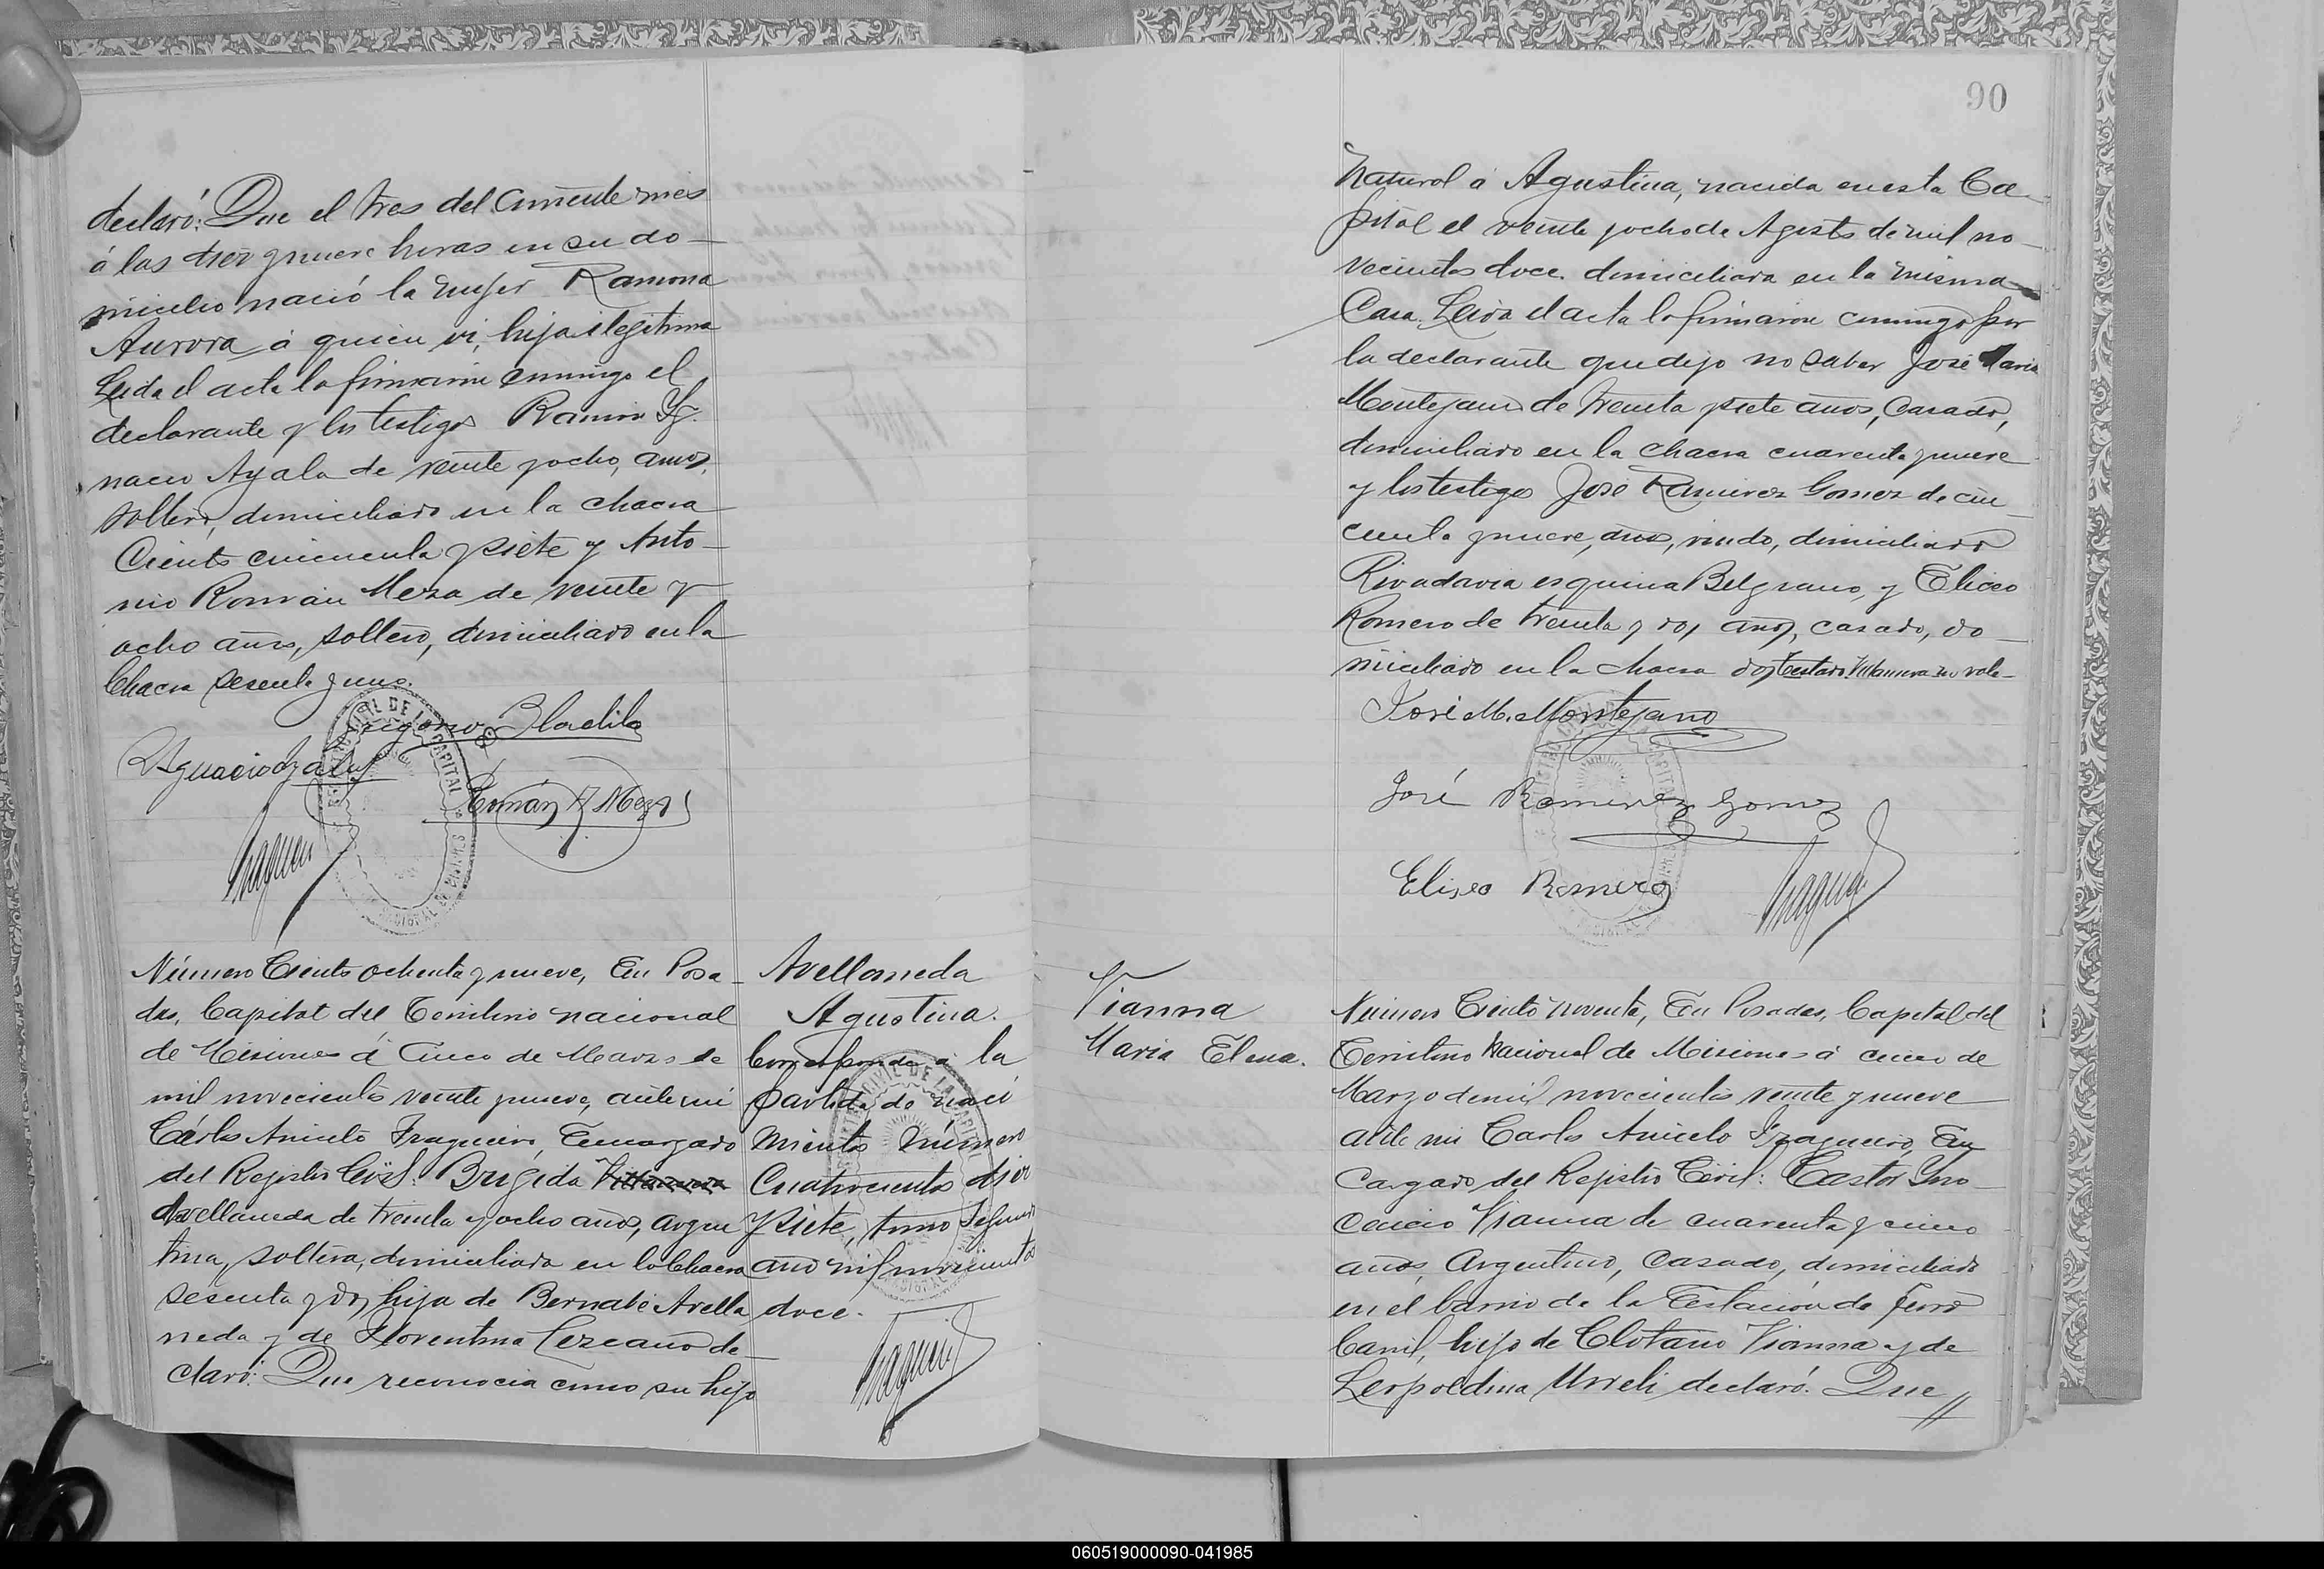 declaró: Que el tres del corriente mes
á las diez y nueve horas en su do-
micilio nació la mujer Ramona
Aurora á quien vi, hija ilegitima
Leida el acta la firmaron conmigo el
declarante y los testigos Ramon Ig-
nacio Ayala de veinte y ocho, años,
soltero, domiciliado en la chacra
Ciento cincuenta y siete y Anto-
nio Román Meza de veinte y
ocho años, soltero, domiciliado en la
Chacra sesenta y uno.
Bladila
R Ignacio Ayala
Román A Meza
Número Ciento ochenta y nueve, En Posa-
das, Capital del Territorio nacional
de Misiones á Cinco de Marzo de
mil novecientos veinte y nueve, ante mi
Cárlos Aniceto Fragueiro, Encargado
del Registro Civil: Brigida Villanueva
Avellaneda de treinta y ocho años, argen
tina, soltera, domiciliada en la Chacra
sesenta y dos, hija de Bernabé Avella
neda y de Florentina Lezcano de-
claró: Que reconocia como su hijo
Avellaneda
Agustina.
Corresponde á la
partida de naci
miento número
Cuatrocientos diez
y siete, tomo segundo
año mil novecientos
doce.
90
Natural á Agustina, nacida en esta Ca-
pital el veinte y ocho de Agosto de mil no-
vecientos doce. domiciliada en la misma
Casa. Leida el acta la firmaron conmigo por
la declarante que dijo no saber José Maria
Montejano de treinta y siete años, Casado,
domiciliado en la chacra cuarenta y nueve
y los testigos José Ramirez Gomez de cin-
cuenta y nueve, años, viudo, domiciliado
Rivadavia esquina Belgrano, y Eliceo
Romero de treinta y dos años, casado, do-
miciliado en la chacra dos Testado: Villanueva no vale-
José M. Montejano
José Ramirez Gomez
Eliseo Romero
Vianna
Maria Elena.
Número Ciento noventa, En Posadas, Capital del
Territorio Nacional de Misiones á cinco de
Marzo de mil novecientos veinte y nueve
ante mi Carlos Aniceto Fragueiro, En
cargado del Registro Civil: Castor Ino-
cencio Vianna de cuarenta y cinco
años, Argentino, Casado, domiciliado
en el barrio de la Estación de Ferro
Carril, hijo de Clotario Vianna y de
Leopoldina declaró: Que //
060519000090-041985